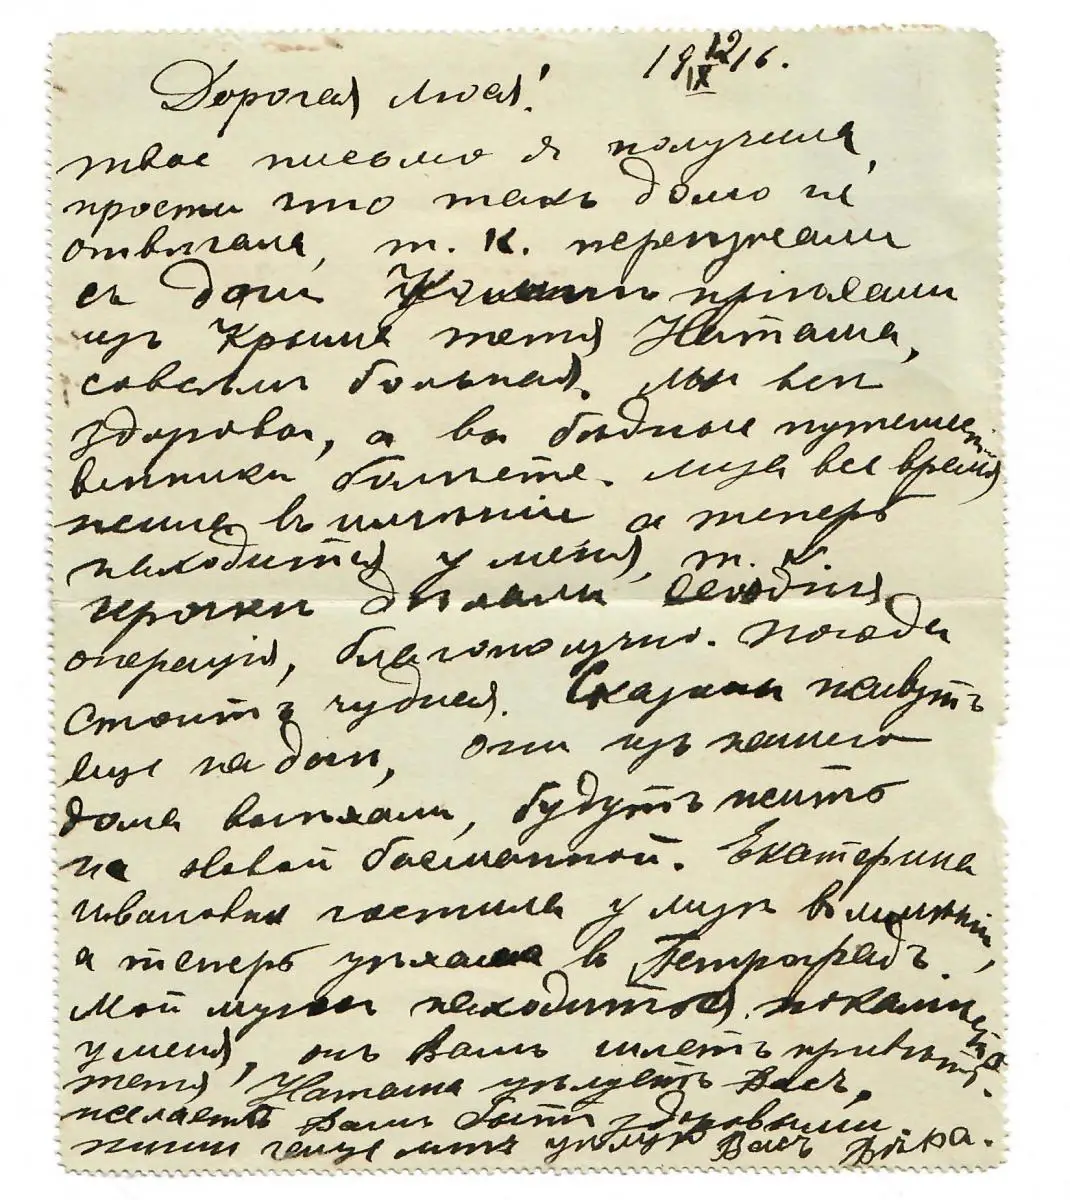 19 12/IX 16.
Дорогая Люся!
твое письмо я получила,
прости что такъ долго не
отвѣчала, т. к. переѣзжали
съ дачи. приѣхали
изъ Крыма тетя Наташа,
совсѣмъ больная. Мы всѣ
здоровы, а вы бѣдные путешест
венники болѣете. Муза все время
жила въ имѣнiи а теперь
находится у меня, т. к.
дѣлали сегодня
операцiя, благополучно. Погода
стоитъ чудная. живутъ
еще на дачѣ, они изъ нашего
дома выѣхали, будутъ жить
на Новой Басманной. Екатерина
Ивановна гостила у Музы въ имѣнiи,
а теперь уѣхала въ Петроградъ.
Мой мужъ находится покамѣстъ
у меня, онъ Вамъ шлетъ привѣтъ.
тетя Наташа цѣлуетъ Васъ,
желаетъ Вамъ быть здоровыми
пиши чаще мнѣ цѣлую Васъ Вѣра.